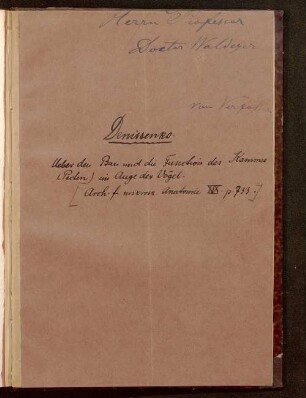 Herrn Professor
Doctor Waldeyer
vom Verfas.
Denissenko.
Ueber den Bau und die Function des Kammes
(Pecten) im Auge der Vögel.
[Arch. f. microsc. Anatomie XIX. p. 733.]